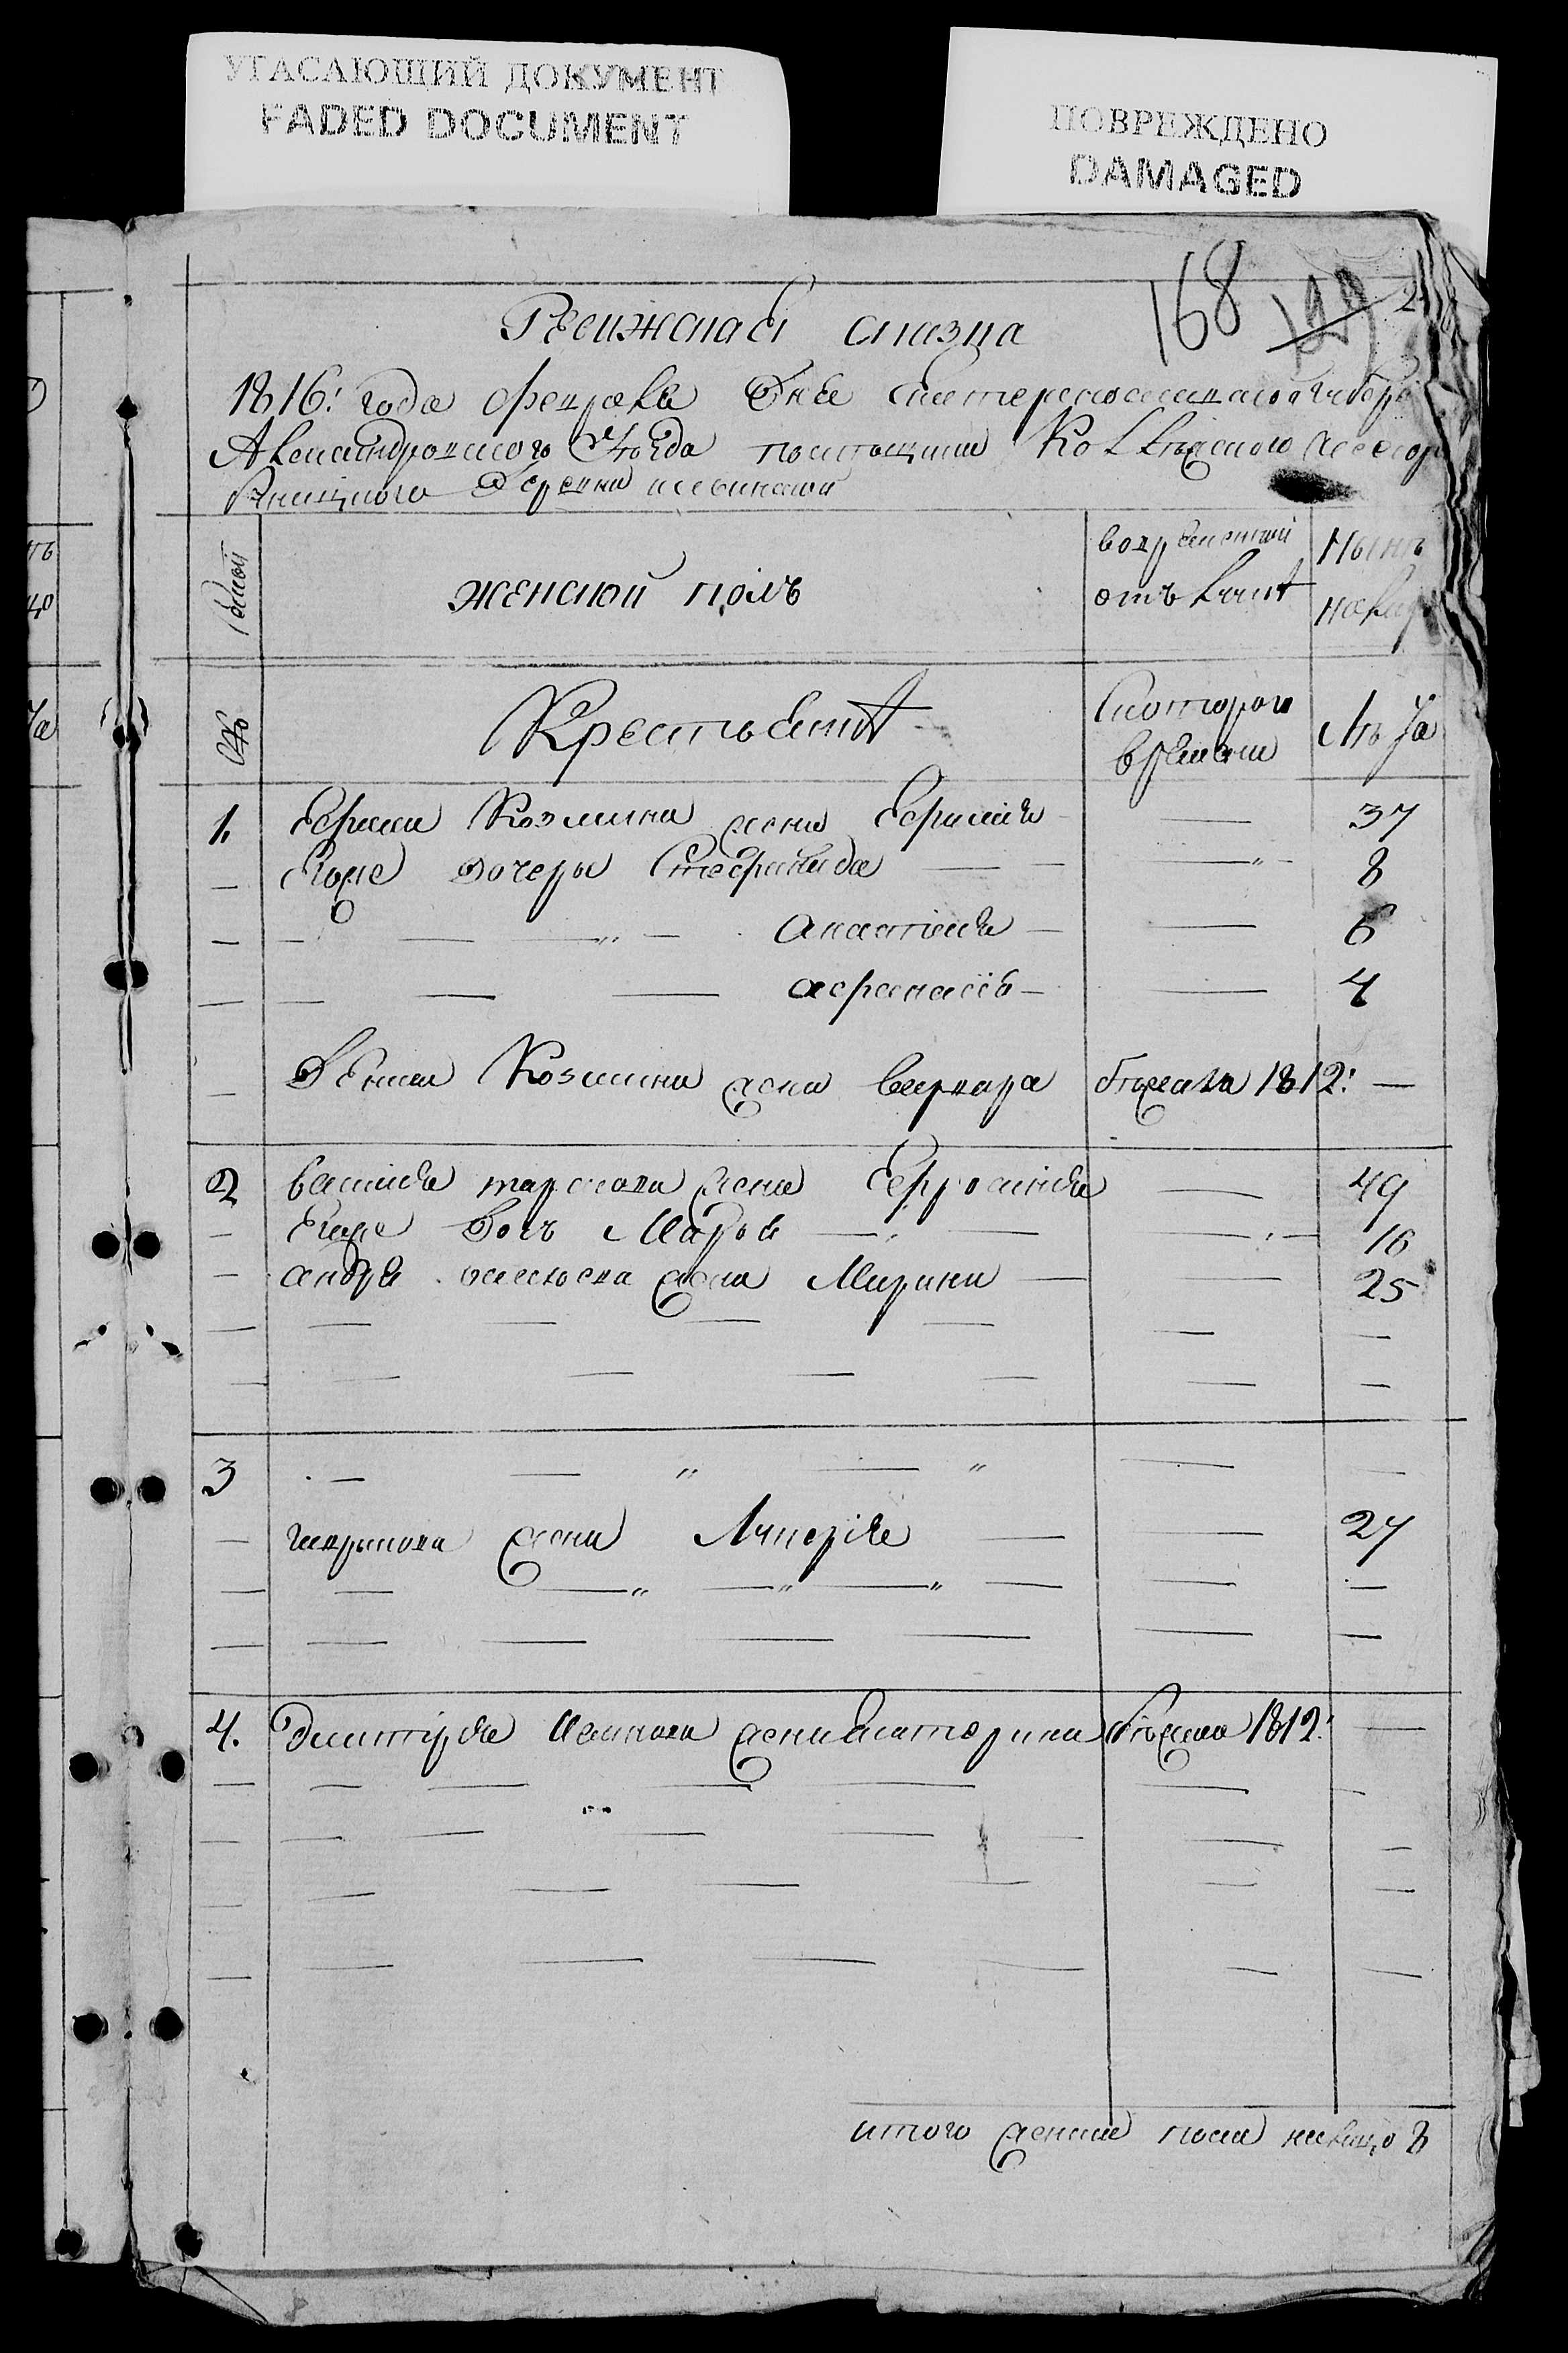 УГАСАЮЩИЙ ДОКУМЕНТ
FADED DOCUMENT
ПОВРЕЖДЕНО
DAMAGED
168 129 2
Ревижская сказка
1816: года февраля дня Екатеринославской губер
Александровского уезда помещика Коллежского асесор
деревни
женской полъ
вовременной отълучке
Ныне налицо
Крестьяне
Скоторого времени
Лета
1. Ефима Козмина жена Ефимия — 37
Егоже дочери Стефанида — 8
— Анастасия — 6
— афанасия — 4
Дениса Козмина жена варвара бежала 1812: —
2 василия тарасова жена Ефросиния — 49
Егоже дочь Мавра — 16
андрея жена Марина — 25
3 — " — " —
гаврилова жена Лукерия — 27
4. Дмитрия Иванова жена катерина бежала 1812: —
итого женска пола налицо 8